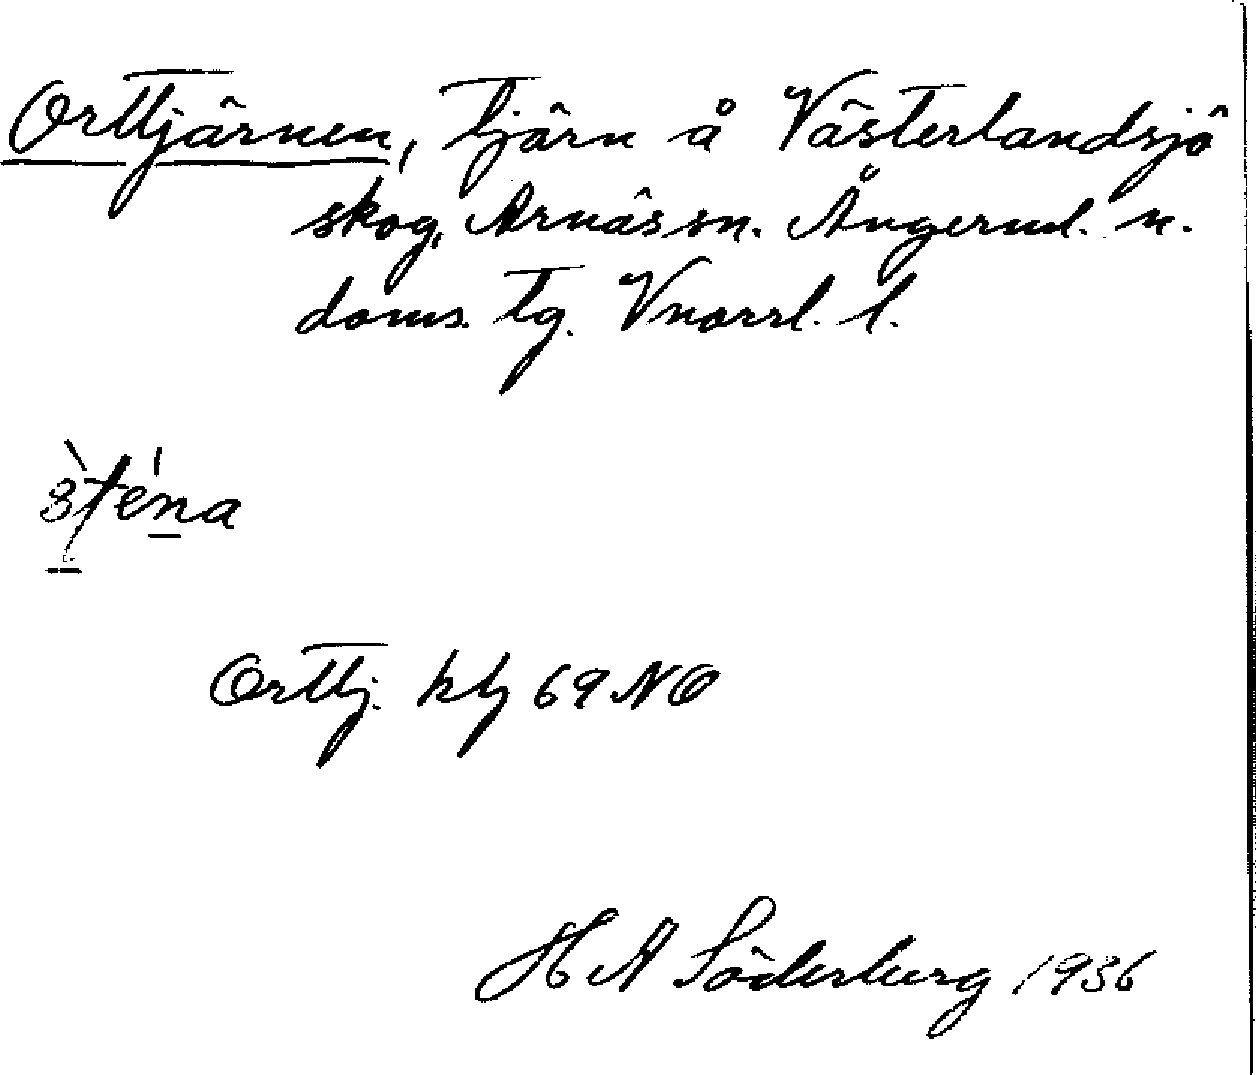 Orttjärnen, tjärn å Västerlandsjö
skog, Arnäs sn. Ångerml. n.
doms. tg. Vnorrl. l.
Orttj. kbl 69 NO
H A Söderberg 1936